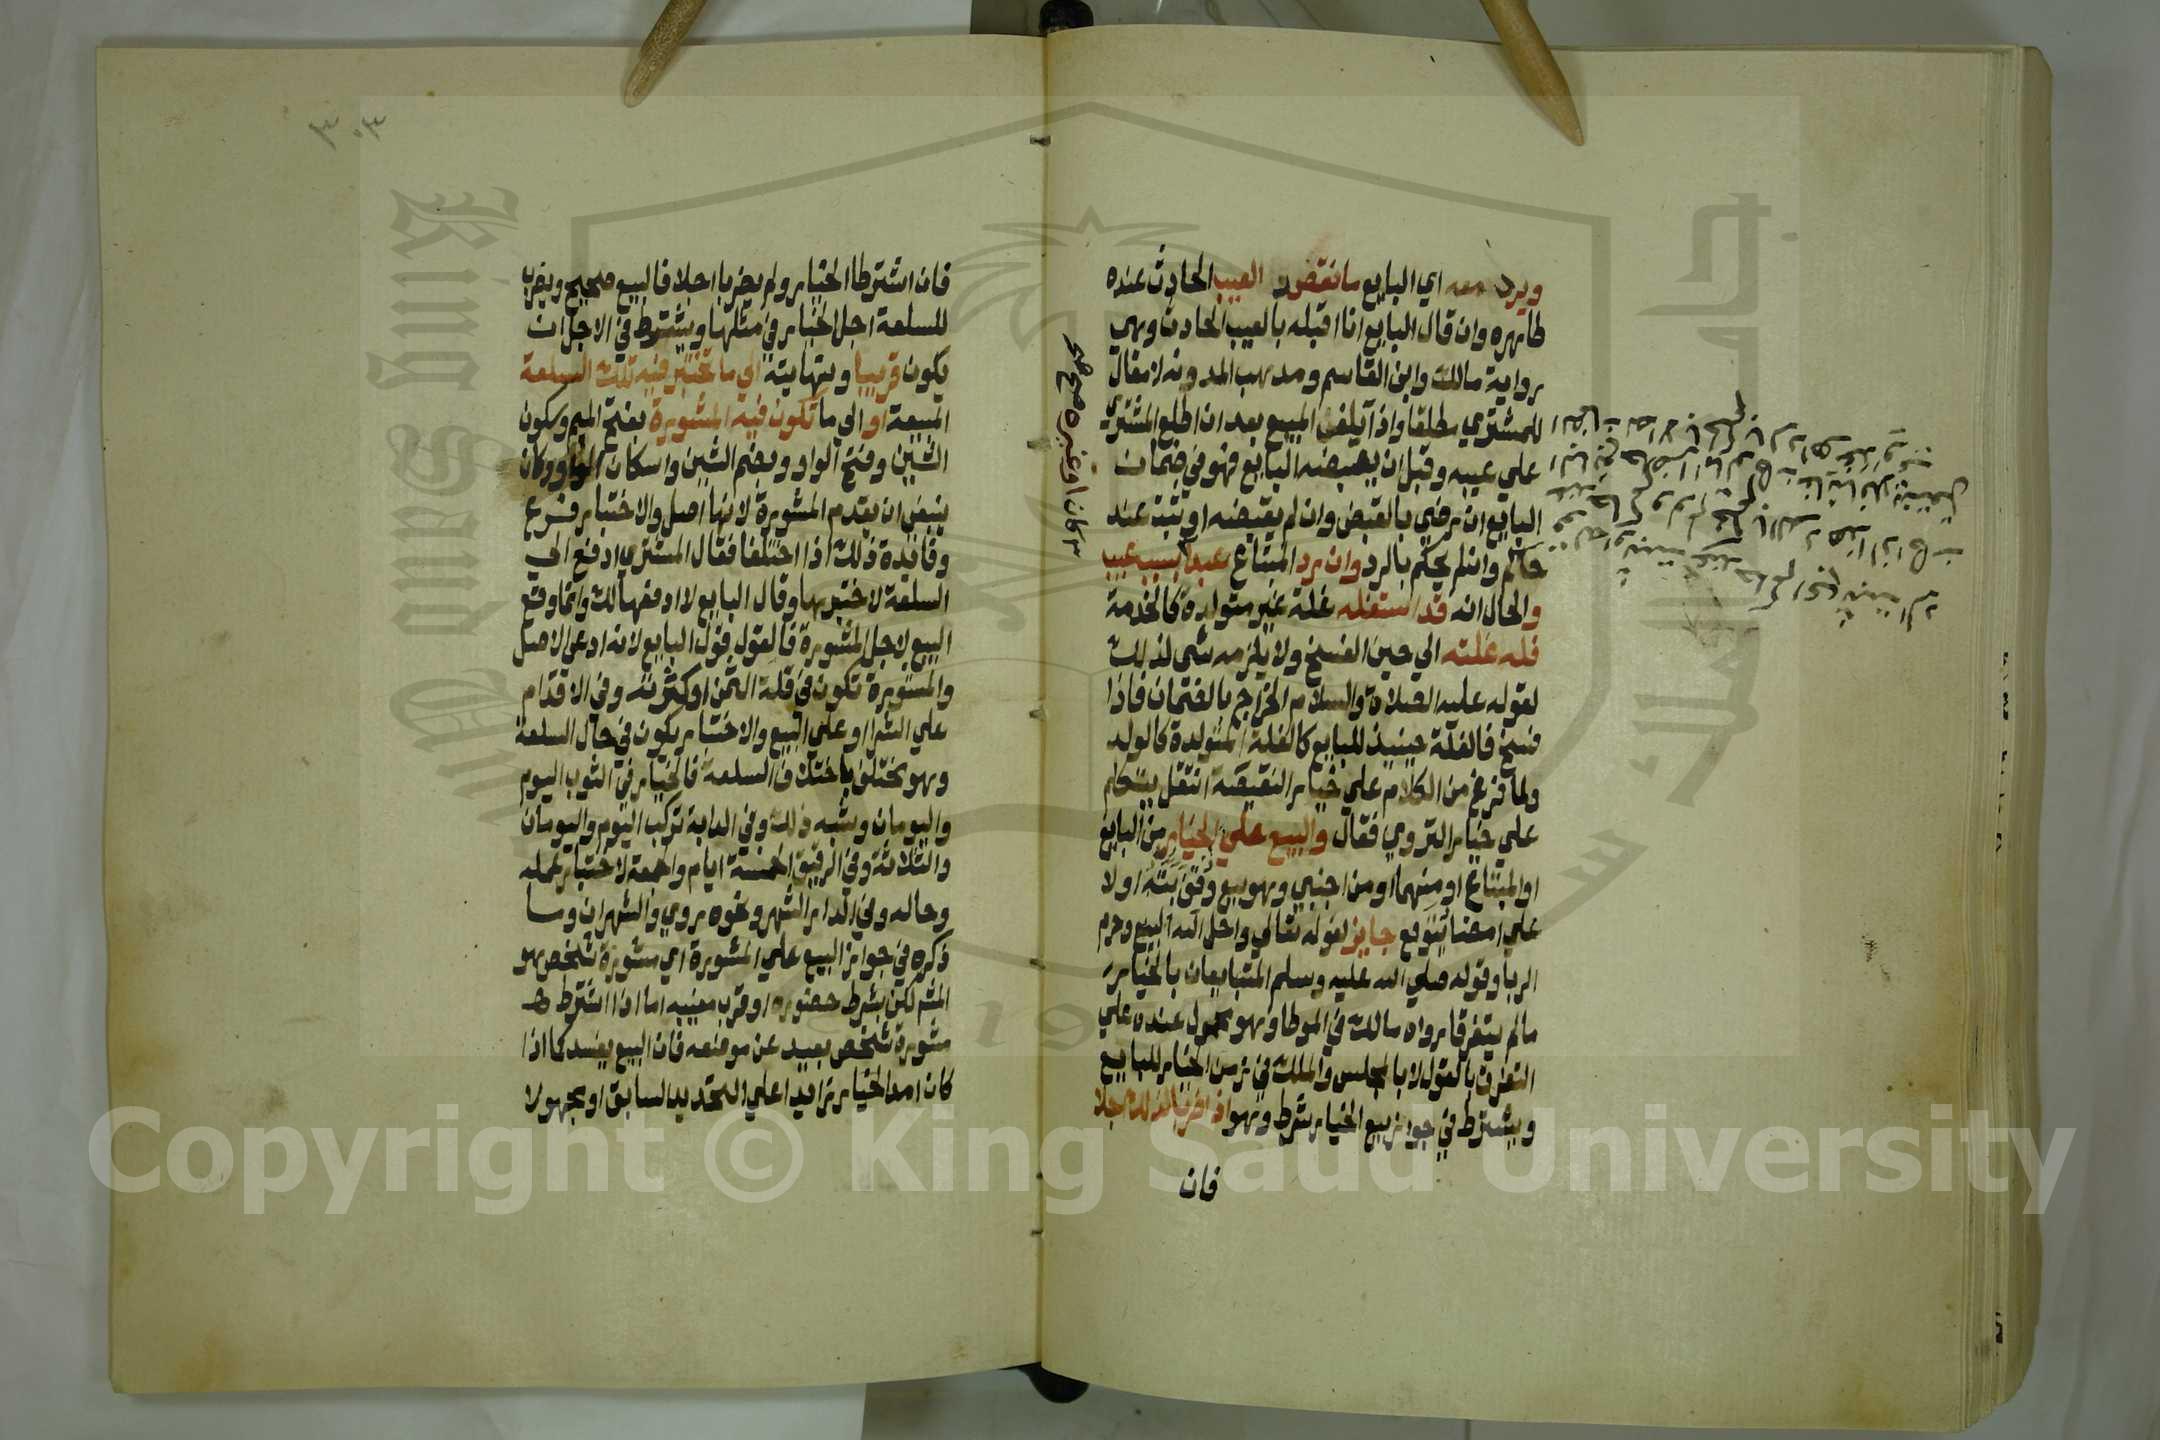 ويرد معه اي البايع ما نقصه العيب الحادث عنده
ظاهره وان قال البايع انا اقبله بالعيب الحادث وهي
رواية مالك وابن القاسم ومذهب المدونة لا مقال
للمشتري مطلقا واذا تلف المبيع بعد ان اطلع المشتري
علي عيبه وقبل ان يقبضه البايع فهو في ضمان
البايع ان رضي بالقبض وان لم يقبضه او يثبت عند
حاكم وان لم يحكم بالرد وان رد المبتاع عبدا بسبب عيب
والحال انه قد استغله غلة غير متولدة كالخدمة
فله غلته الي حين الفسخ ولا يلزمه شي لذلك
لقوله عليه الصلاة والسلام الخراج بالضمان فاذا
فسخ فالغلة حينيذ للبايع كالغلة المتولدة كالولد
ولما فرغ من الكلام علي خيار النقيصة انتقل يتكلم
علي خيار التروي فقال والبيع علي الخيار من البايع
او المبتاع او منهما او من اجنبي وهو بيع وقف بته اولا
علي امضا يتوقع جايز لقوله تعالي واحل الله البيع وحرم
الربا وقوله صلي الله عليه وسلم المتبايعان بالخيار
ما لم يتفرقا رواه مالك في الموطا وهو محمول عنده علي
التفرق بالقول لا بالمجلس والملك في زمن الخيار للبايع
ويشترط في جواز بيع الخيار شرط وهو اذا ضربا لذلك اجلا
فان
كان او غيره صح
٣٠٣
فان اشترطا الخيار ولم يضربا اجلا فالبيع صحيح ويضرب
للسلعة اجل الخيار في مثلها ويشترط في الاجل ان
يكون قريبا ونهايته الي ما تختبر فيه تلك السلعة
المبيعة او الي ما تكون فيه المشورة بفتح الميم وسكون
الشين وفتح الواو وبضم الشين واسكان الواو وكان
ينبغي ان يقدم المشورة لانها اصل والاختبار فرع
وفايدة ذلك اذا اختلفا فقال المشتري ادفع الي
السلعة لاختبرها وقال البايع لا ادفعها لك وانما وقع
البيع لاجل المشورة فالقول قول البايع لانه ادعي الاصل
والمشورة تكون في قلة الثمن او كثرته وفي الاقدام
علي الشرا او علي البيع والاختبار يكون في حال السلعة
وهو يختلف باختلاف السلعة فالخيار في الثوب اليوم
واليومان وشبه ذلك وفي الدابة تركب اليوم واليومان
والثلاثة وفي الرقيق الخمسة ايام والجمعة لاختبار عمله
وحاله وفي الدار الشهر ونحوه روي والشهران وما
ذكره في جواز البيع علي المشورة اي مشورة شخص هو
المشهور لكن بشرط حضوره او قرب مغيبه اما اذا اشترط
مشورة شخص بعيد عن موضعه فان البيع يفسد كما اذا
كان امد الخيار زايدا علي التحديد السابق او مجهولا
Copyright © King Saud University